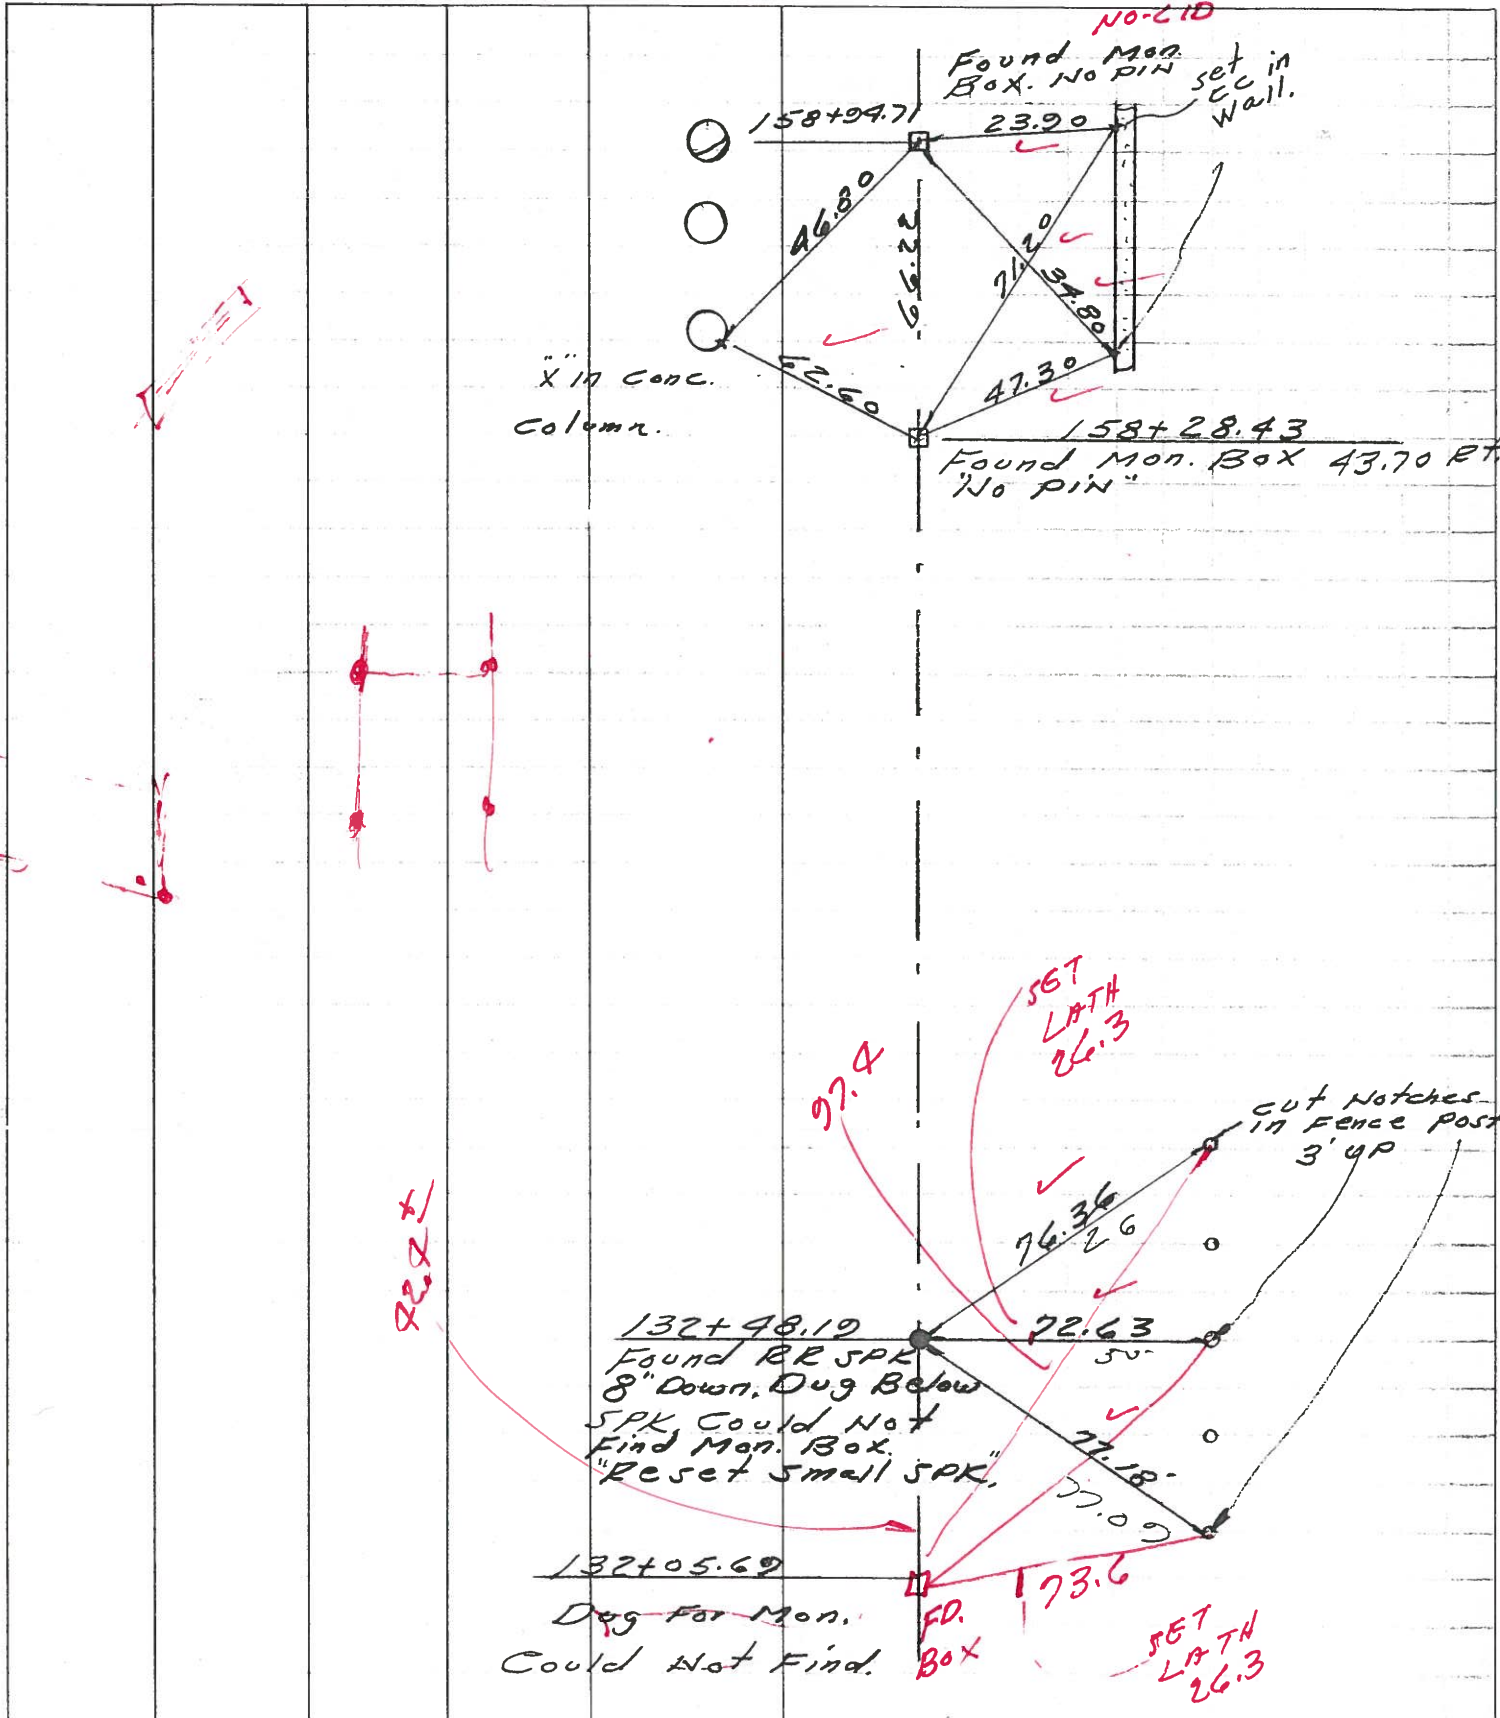 NO-LID
Found Mon.
Box. No PIN
set in
CC
Wall.
158+94.71
23.90
46.80
66.22
71.20
34.80
"X" in Conc.
Column.
62.60
47.30
158+28.43
Found Mon. Box 43.70 Rt.
"No PIN"
SET
LATH
26.3
97.4
Cut Notches
in Fence Post
3' up
76.36
26
42.4±
132+48.19
72.63
50
Found RR SPK
8" Down, Dug Below
SPK, Could Not
Find Mon. Box.
"Reset Small SPK",
77.18
77.09
132+05.69
73.6
Dug For Mon.
Could Not Find.
FD.
BOX
SET
LATH
26.3